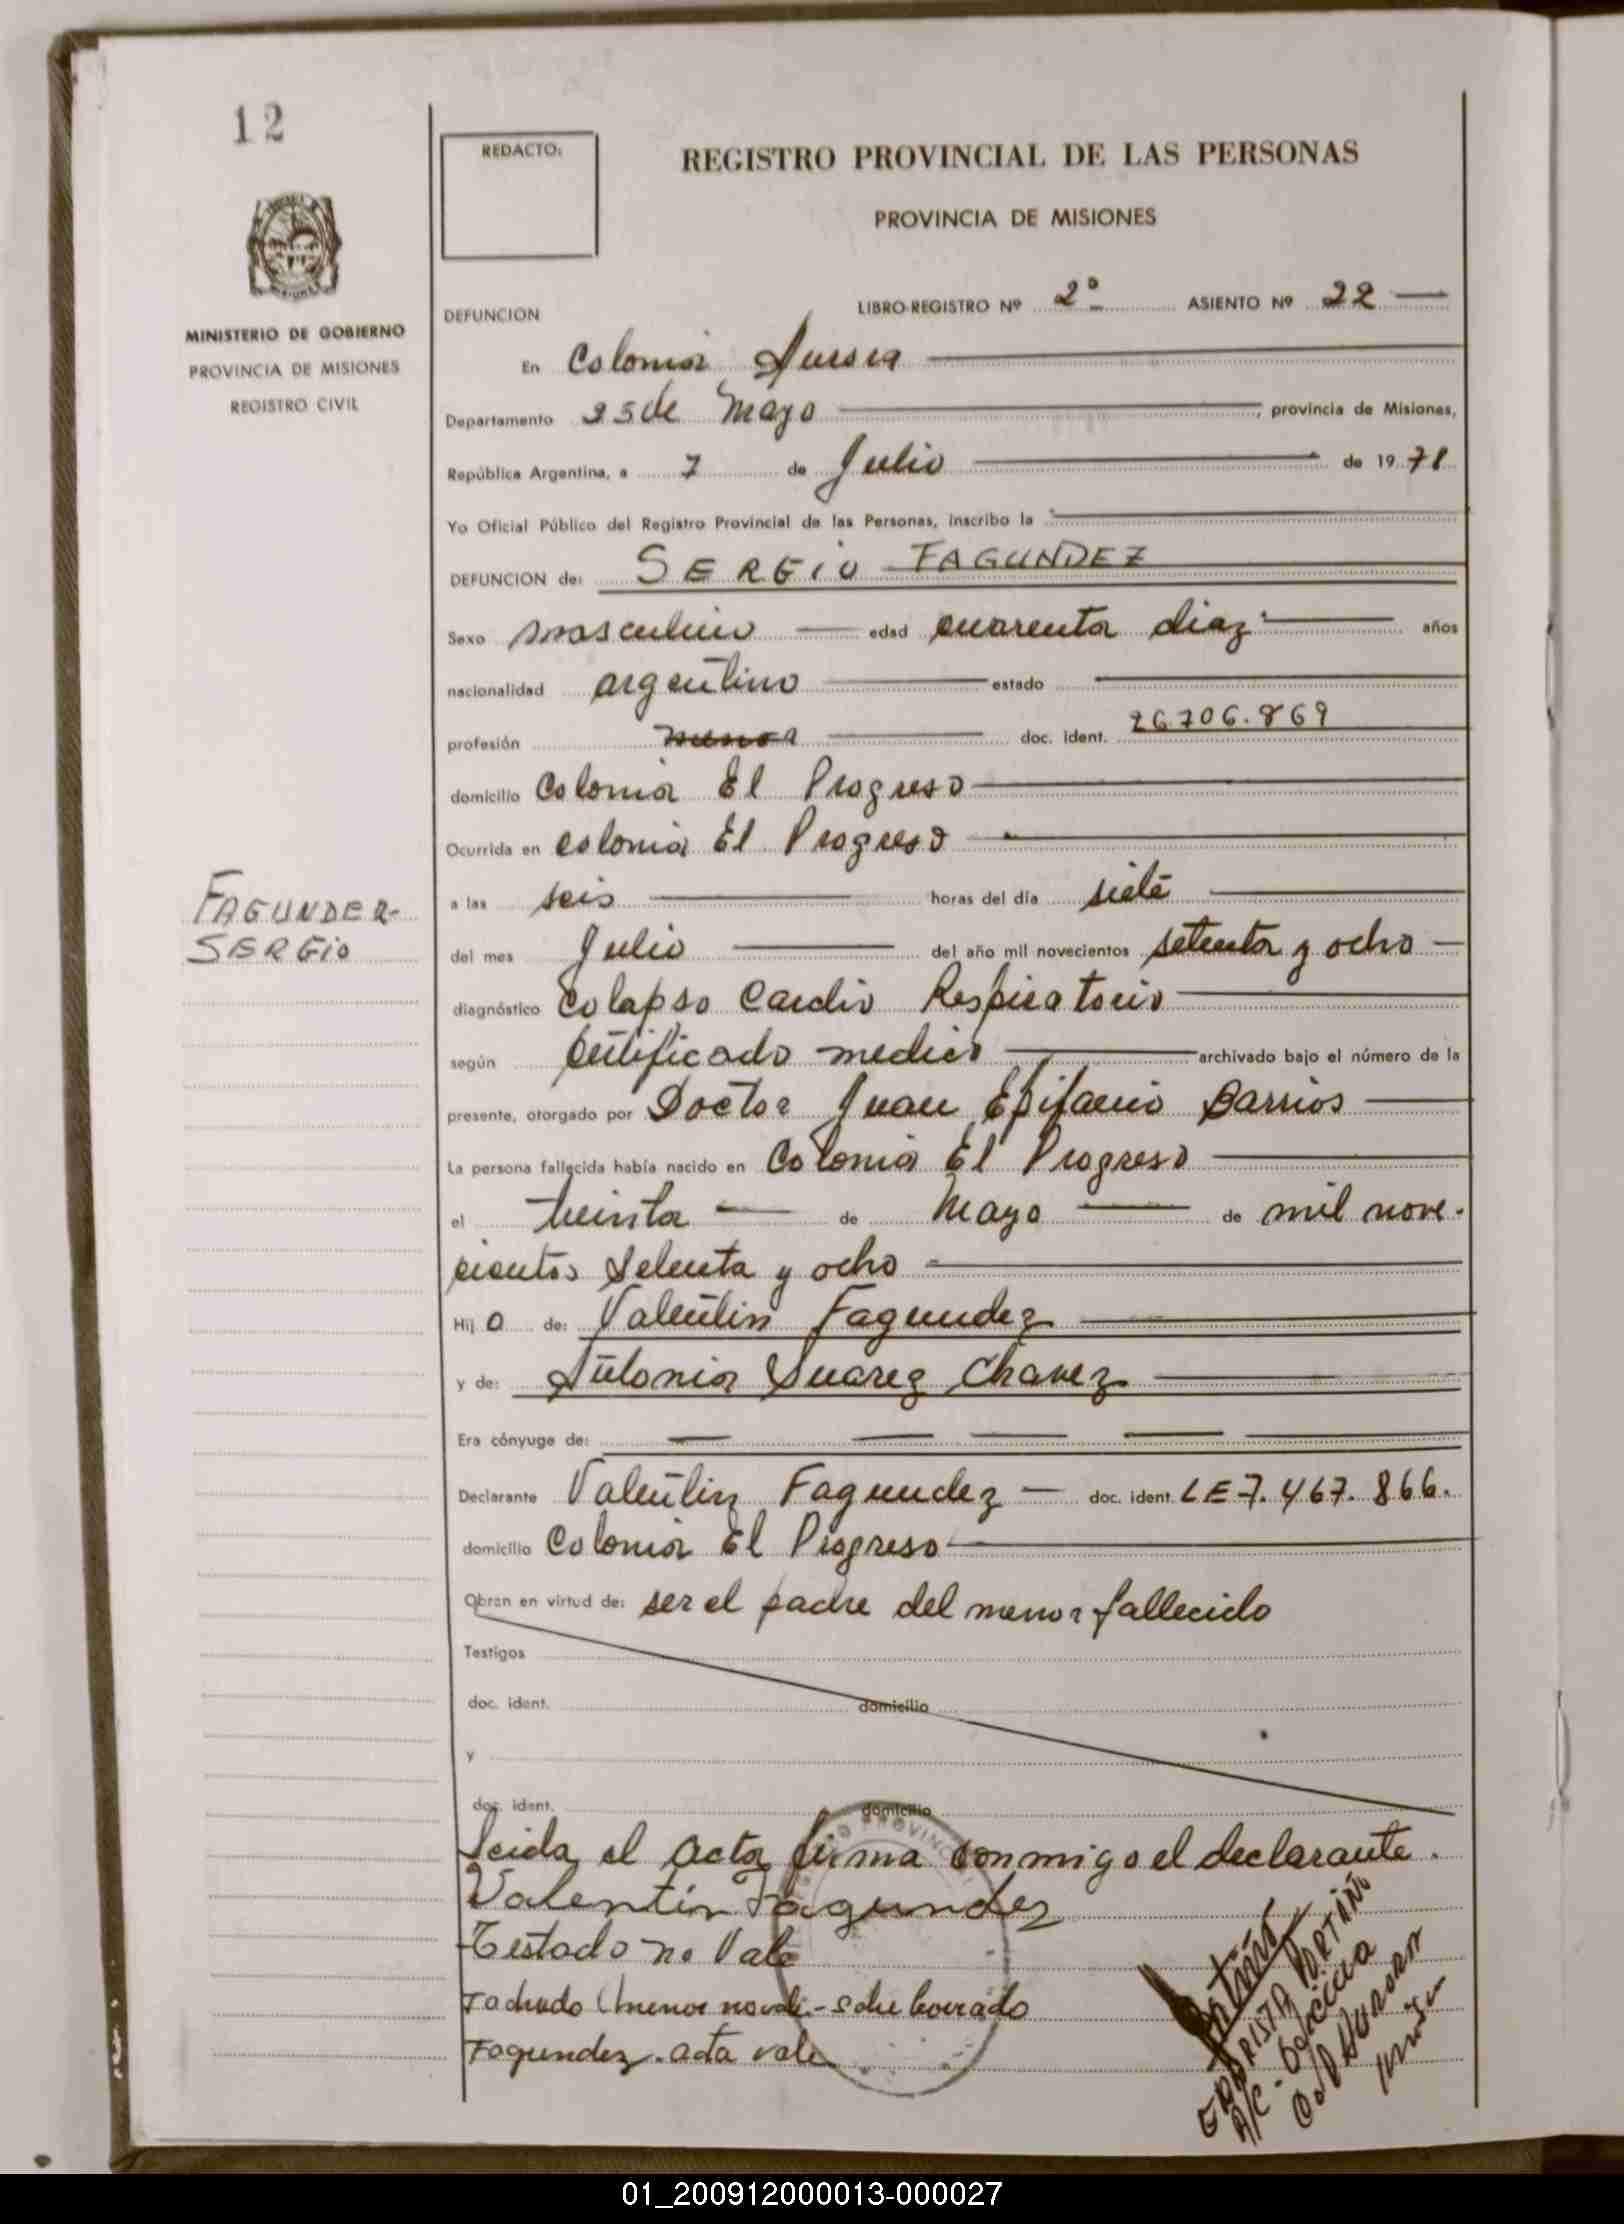 12
REDACTO:
REGISTRO PROVINCIAL DE LAS PERSONAS
PROVINCIA DE MISIONES
MINISTERIO DE GOBIERNO
PROVINCIA DE MISIONES
REGISTRO CIVIL
DEFUNCION
LIBRO-REGISTRO Nº 2º ASIENTO Nº 22
En Colonia Aurora
Departamento 25 de Mayo, provincia de Misiones,
República Argentina, a 7 de Julio de 19 78
Yo Oficial Público del Registro Provincial de las Personas, inscribo la
DEFUNCION de: SERGIO FAGUNDEZ
Sexo masculino edad cuarenta diaz años
nacionalidad argentino estado
profesión menor doc. ident. 26706.869
domicilio Colonia El Progreso
Ocurrida en colonia El Progreso
FAGUNDEZ-
SERGIO
a las seis horas del día siete
del mes Julio del año mil novecientos setenta y ocho
diagnóstico Colapso Cardio Respiratorio
según Certificado medico archivado bajo el número de la
presente, otorgado por Doctor Juan Epifanio Barrios
La persona fallecida había nacido en Colonia El Progreso
el treinta de Mayo de mil nove-
cientos setenta y ocho
Hij o de: Valentin Fagundez
y de: Antonia Suarez Chavez
Era cónyuge de:
Declarante Valentin Fagundez doc. ident. LE 7.467.866.
domicilio Colonia El Progreso
Obran en virtud de: ser el padre del menor fallecido
Testigos
doc. ident. domicilio
y
doc. ident. domicilio
Leida el acta firma conmigo el declarante.
Valentin Fagundez
Testado no Vale
Tachado menor no vale - sobre borrado
Fagundez. acta vale
A/C
01_200912000013-000027